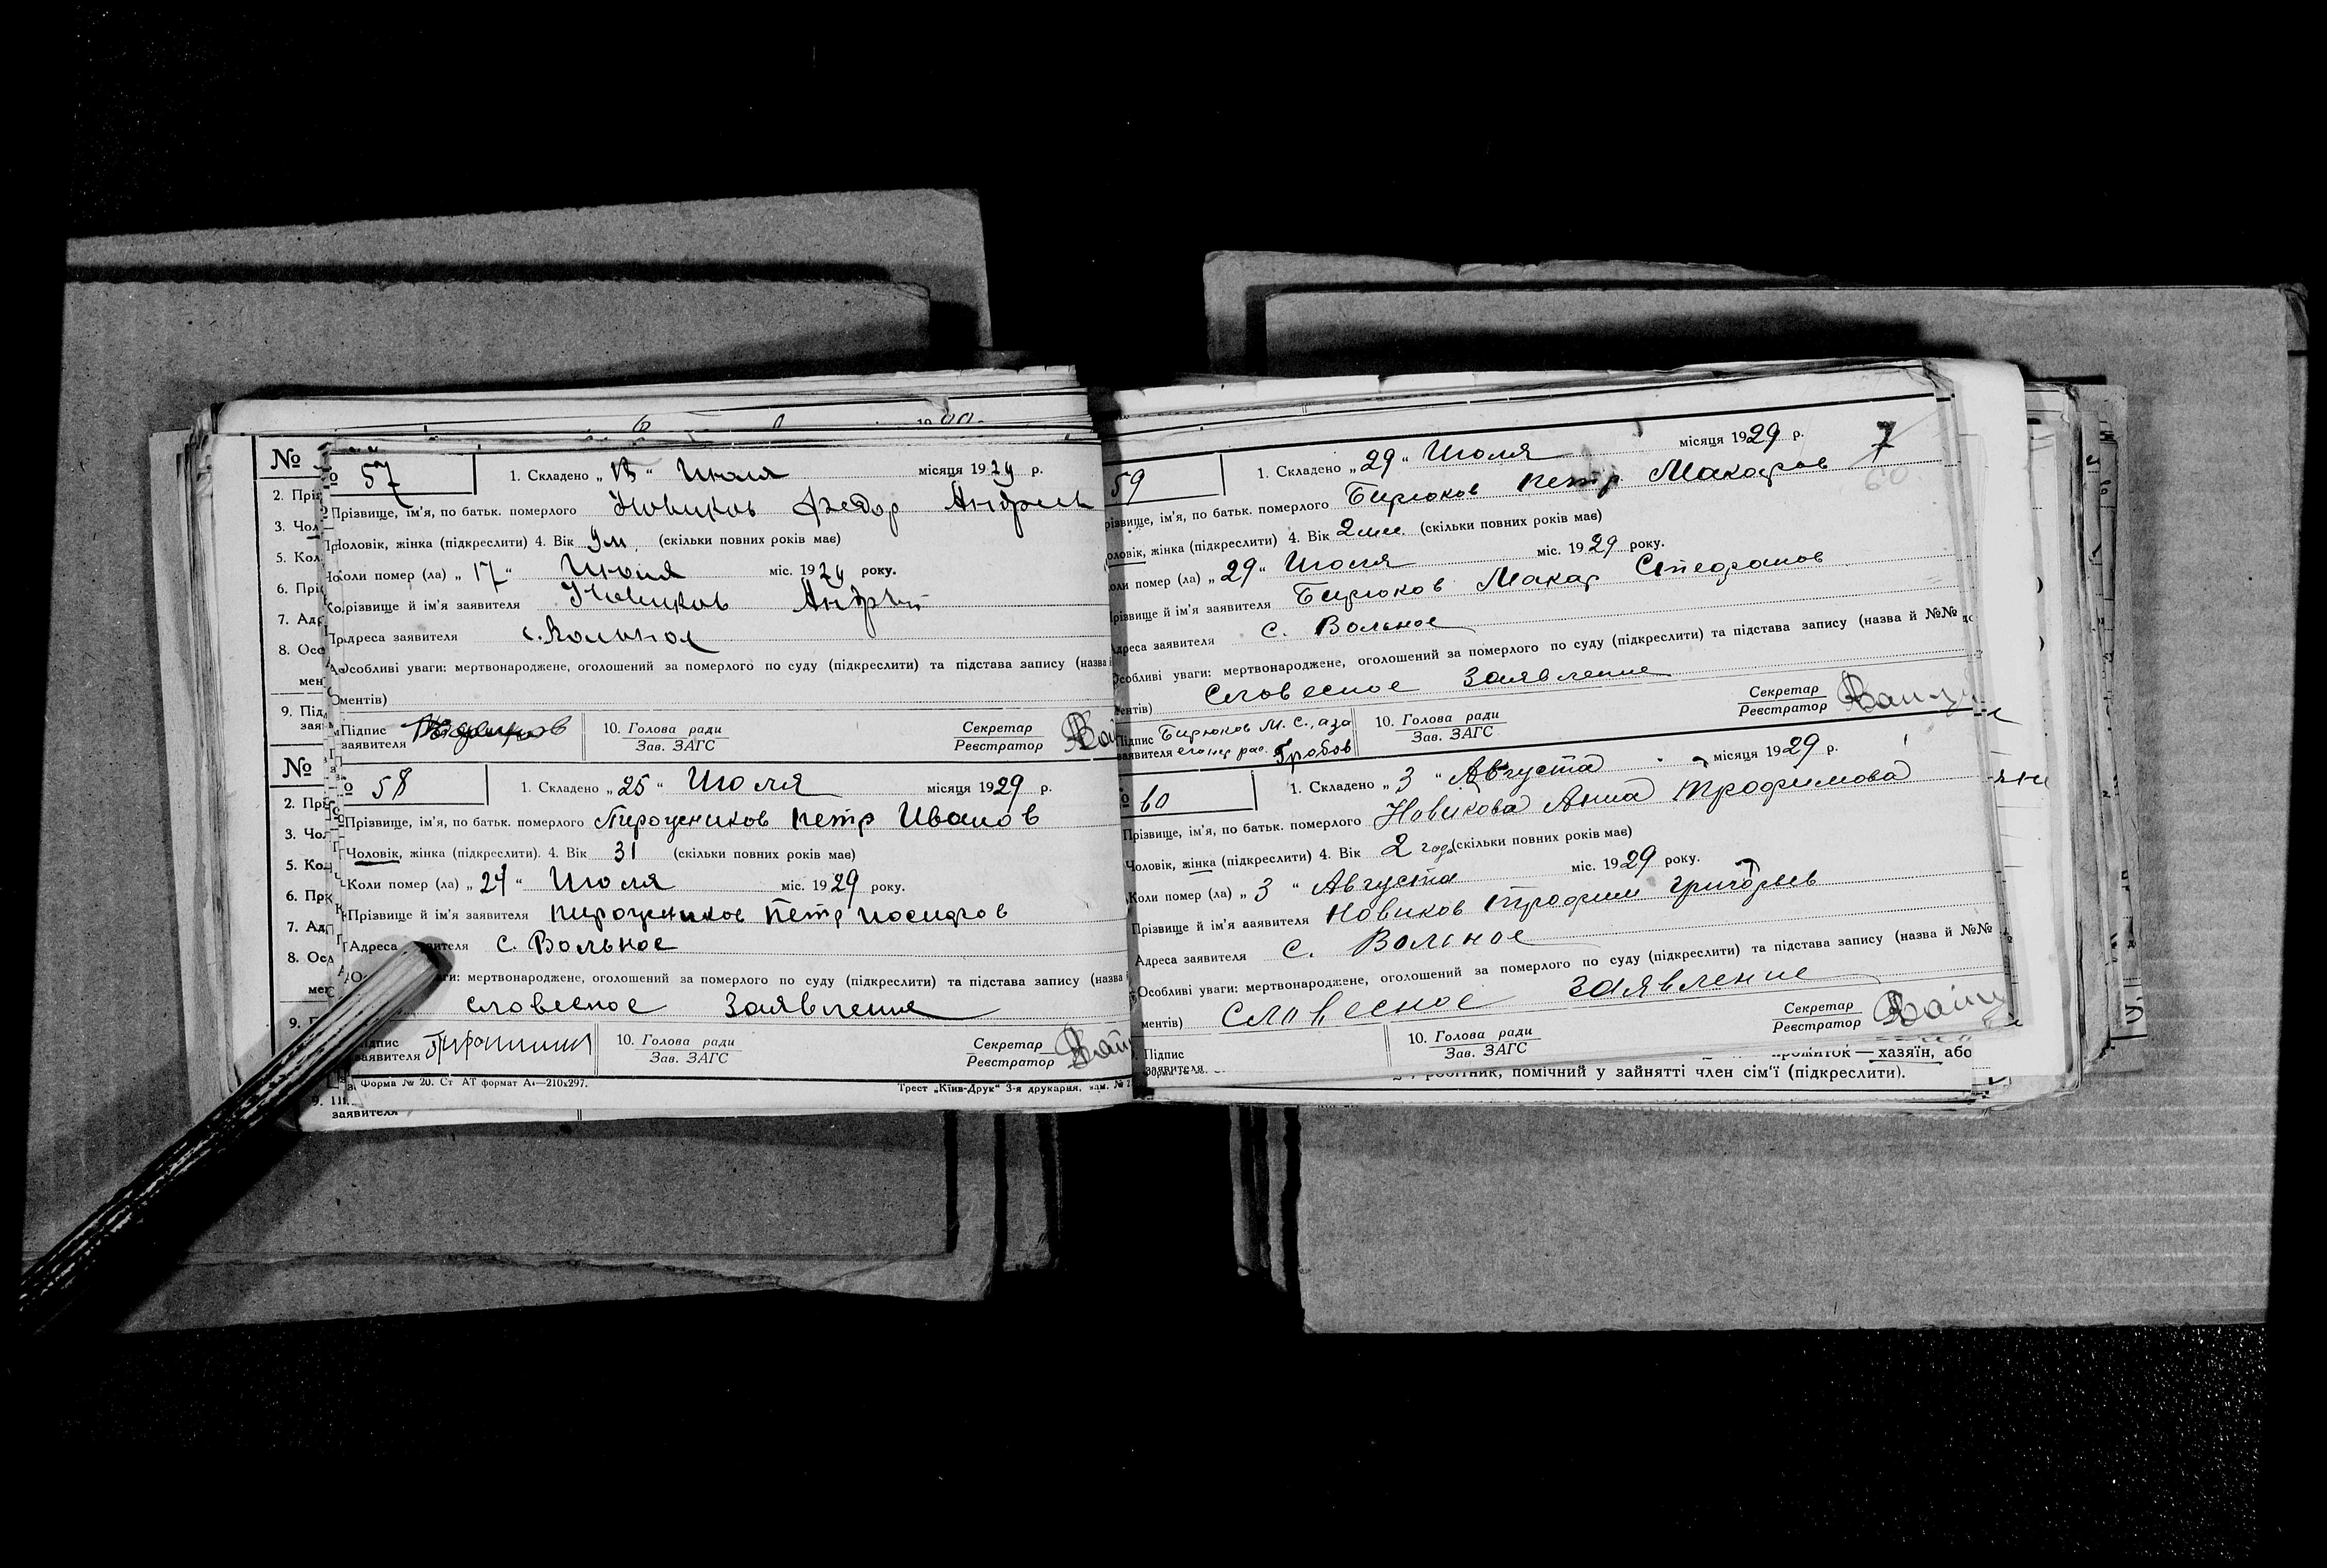 № 57
1. Складено „ “ Июля місяця 1929 р.
Прізвище, ім'я, по батьк. померлого Новиков Федор Андреев
Чоловік, жінка (підкреслити) 4. Вік 9 м. (скільки повних років має)
Коли помер (ла) „17“ Июля міс. 1929 року.
Прізвище й ім'я заявителя Новиков Андрей
Адреса заявителя с. Вольное
Особливі уваги: мертвонароджене, оголошений за померлого по суду (підкреслити) та підстава запису (назва
ментів)
Підпис заявителя
10. Голова ради
Зав. ЗАГС
Секретар
Реєстратор
№ 58
1. Складено „25“ Июля місяця 1929 р.
Прізвище, ім'я, по батьк. померлого Пирожников Петр Иванов
Чоловік, жінка (підкреслити). 4. Вік 31 (скільки повних років має)
Коли помер (ла) „24“ Июля міс. 1929 року.
Прізвище й ім'я заявителя Пирожников Петр Иосифов
Адреса заявителя с. Вольное
уваги: мертвонароджене, оголошений за померлого по суду (підкреслити) та підстава запису (назва
словесное заявление
Підпис заявителя
10. Голова ради
Зав. ЗАГС
Секретар
Реєстратор
Форма № 20. Ст АТ формат А4—210х297. Трест „Київ-Друк“ 3-я друкарня, зам. №
59
1. Складено „29“ Июля місяця 1929 р. 7
60
Прізвище, ім'я, по батьк. померлого Бирюков Петр Макаров
Чоловік, жінка (підкреслити) 4. Вік 2 (скільки повних років має)
Коли помер (ла) „29“ Июля міс. 1929 року.
Прізвище й ім'я заявителя Бирюков Макар Стефанов
Адреса заявителя с. Вольное
Особливі уваги: мертвонароджене, оголошений за померлого по суду (підкреслити) та підстава запису (назва й №№ до
ментів) Словесное заявление
Підпис заявителя Бирюков М. С., а за
Гробов
10. Голова ради
Зав. ЗАГС
Секретар
Реєстратор
№ 60
1. Складено „3“ Августа місяця 1929 р.
Прізвище, ім'я, по батьк. померлого Новикова Анна Трофимова
Чоловік, жінка (підкреслити) 4. Вік 2 года (скільки повних років має)
Коли помер (ла) „3“ Августа міс. 1929 року.
Прізвище й ім'я заявителя Новиков Трофим Григорьев
Адреса заявителя с. Вольное
Особливі уваги: мертвонароджене, оголошений за померлого по суду (підкреслити) та підстава запису (назва й №№
ментів) Словесное заявление
Підпис
заявителя.
10. Голова ради
Зав. ЗАГС
Секретар
Реєстратор
прожиток — хазяїн, або
робітник, помічний у зайнятті член сім'ї (підкреслити).